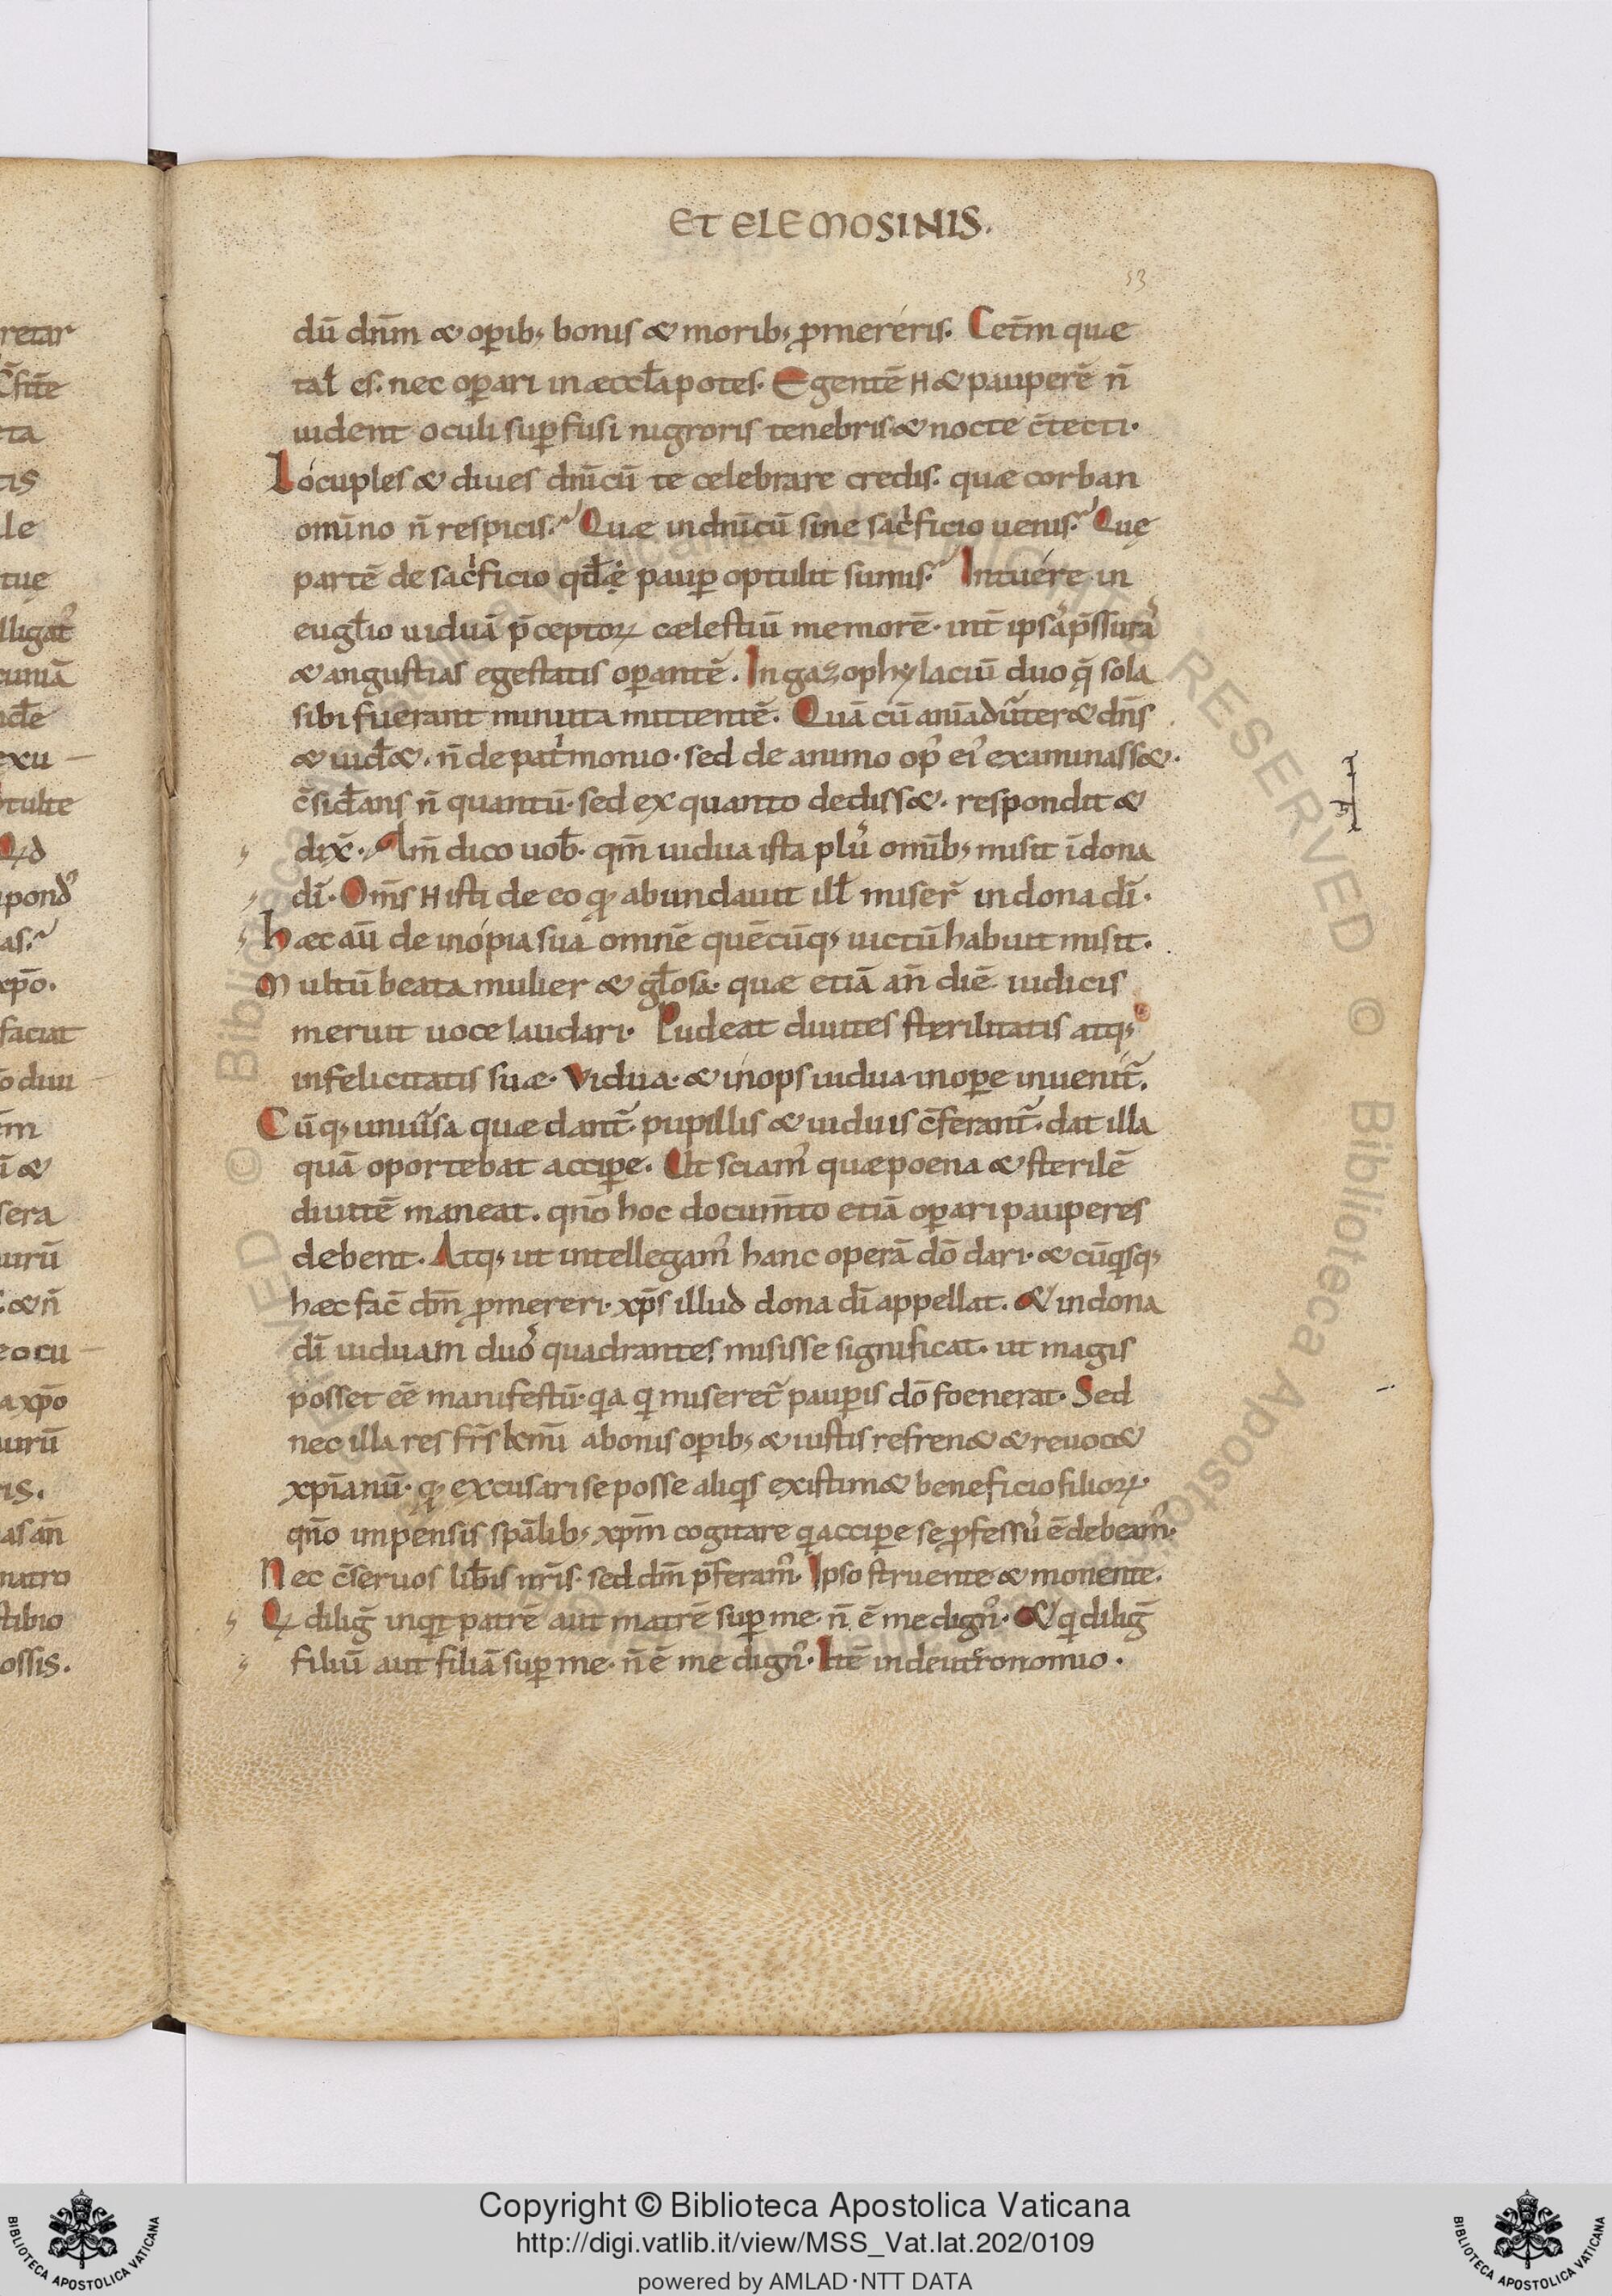 ET ELEMOSINIS.
53
dū dn̄m & op̄ib; bonis & morib; p̄mereris. Cet̄m quae
tal̄ es. nec op̄ari in aeccl̄a potes. Egentē H & pauperē n̄
uident oculi sup̄fusi nigroris tenebris & nocte c̄tecti.
Locuples & diues dn̄icū te celebrare credis. quae corban
omīno n̄ respicis. Quae in dn̄icū sine sac̄ficio uenis. Quę
partē de sac̄ficio qd̄ę paup̄ optulit sumis. Intuere in
eugl̄io uiduā p̄ceptoꝝ caelestiū memorē. int̄ ipsa p̄ssura
& angustias egestatis op̄antē. In gazophylaciū duo q̄ sola
sibi fuerant minuta mittentē. Quā cū aīaduīter& dn̄s
& uid̄&. n̄ de pat̄monio. sed de animo op᾽ ei᾽ examinass&.
c̄sid̄ans n̄ quantū. sed ex quanto dediss&. respondit &
dix̄. Am̄ dico uob̄. qm̄ uidua ista plu᾽ omīb; misit ī dona
dī. Om̄s H isti de eo qꝫ abundauit ill̄ miser̄ in dona dī.
haec aū de inopia sua omnē quēcūq; uictū habuit misit.
Multū beata mulier & gl̄osa. quae etiā an̄ diē iudicis
meruit uoce laudari. Pudeat diuites sterilitatis atq;
infelicitatis suae. Vidua. & inops uidua inop̄e inuenit̄.
Cūq; uniūsa quae dant̄. pupillis & uiduis c̄ferant̄. dat illa
quā oportebat accip̄e. Ut sciam᾽ quae poena & sterilē
diuitē maneat. qn̄o hoc docum̄to etiā op̄ari pauperes
debent. Atq; ut intellegam᾽ hanc operā dō dari. & cūq̄sq;
haec fac̄ dm̄ p̄mereri. xp̄s illud dona dī appellat. & in dona
dī uiduam duo᾽ quadrantes misisse significat. ut magis
posset eē manifestū. q̄a q̄ miseret̄ paup̄is dō foenerat. Sed
nec illa res fr̄s kmī a bonis op̄ib; & iustis refren& & reuoc&
xp̄ianū. qꝫ excusari se posse aliq̄s existim& beneficio filioꝝ.
qn̄o impensis spāl̄ib; xp̄m cogitare q̄ accip̄e se p̄fessu᾽ ē debeam᾽.
Nec c̄seruos lib̄is nr̄is. sed dm̄ p̄feram᾽. Ipso struente & monente.
Q̄ dilig̅ inq̄t patrē aut matrē sup̄ me. n̄ ē me dign᾽. & q̄ dilig̅
filiū aut filiā sup̄ me. n̄ ē me dign᾽. Itē in deut̄ronomio.
Copyright © Biblioteca Apostolica Vaticana
http://digi.vatlib.it/view/MSS_Vat.lat.202/0109
powered by AMLAD·NTT DATA